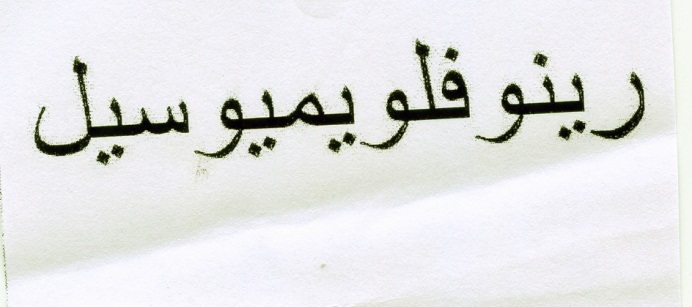 رينو فلويميوسيل